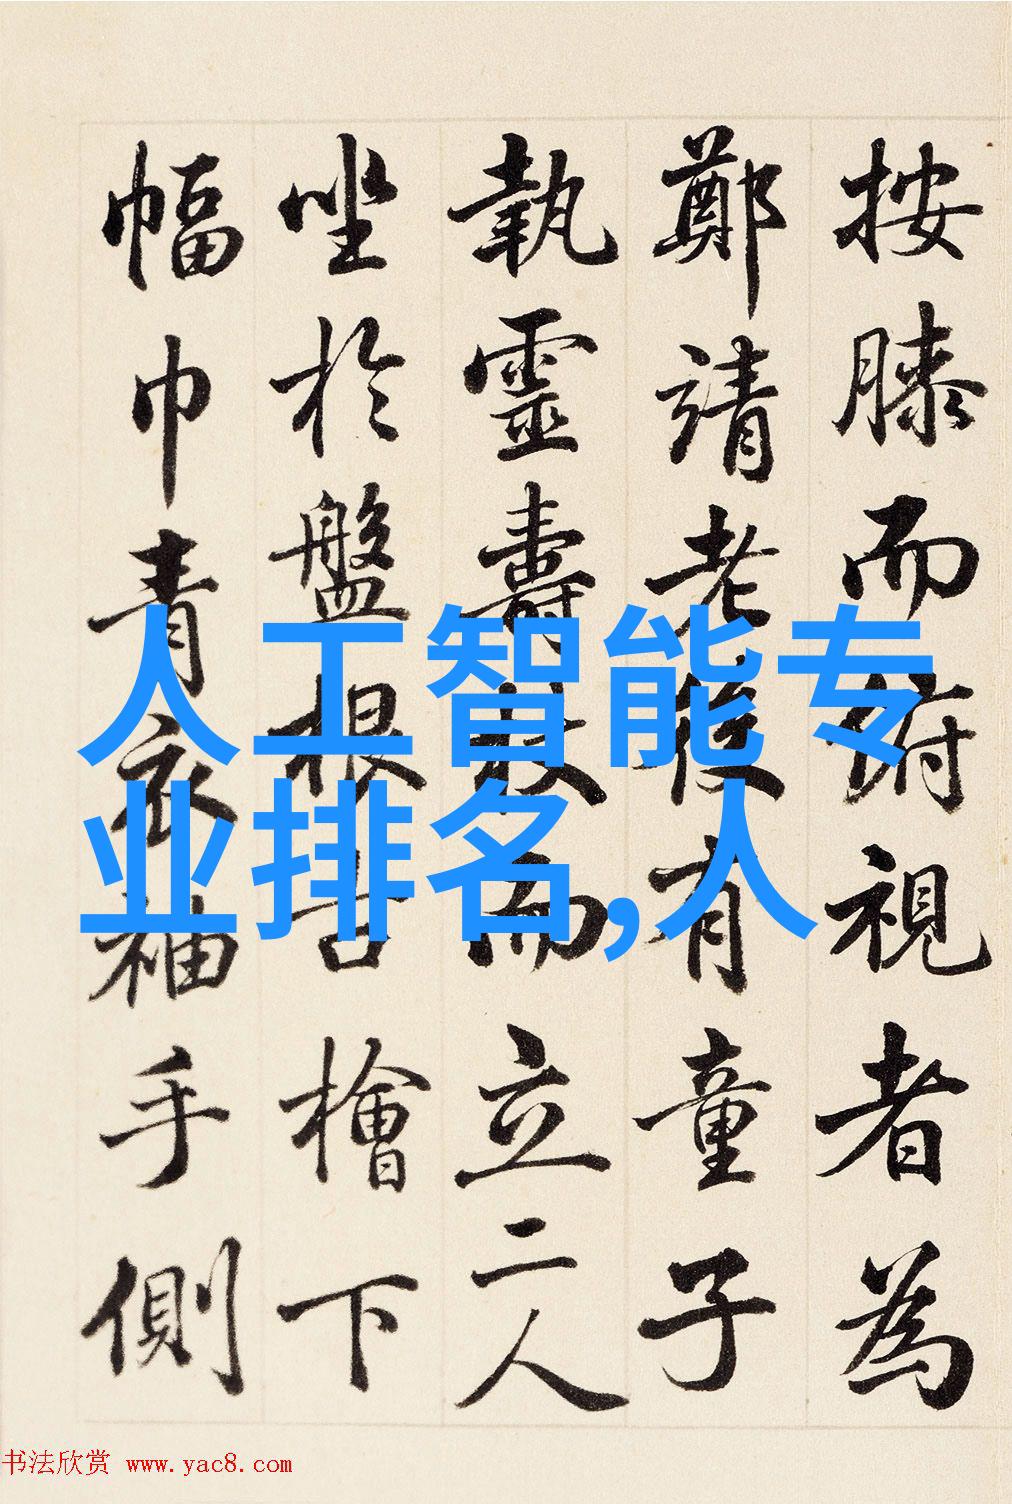 按膝而俯視者為
鄭靖老後有童子
執靈壽杖而立二人
坐於盤根古檜下
幅巾青衣袖手側
人工智能专
业排名,人
书法欣赏 www.yac8.com